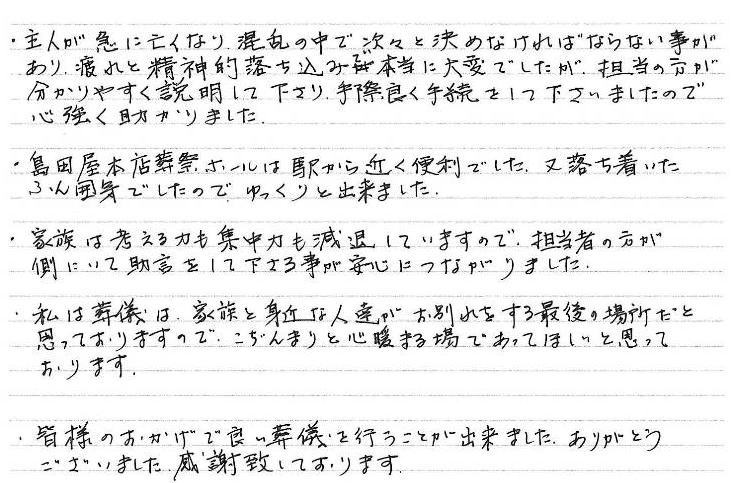 ・主人が急に亡くなり、混乱の中で次々と決めなければならない事が
あり、疲れと精神的落ち込みが本当に大変でしたが、担当の方が
分かりやすく説明して下さり、手際良く手続をして下さいましたので
心強く助かりました。
・島田屋本店葬祭ホールは駅から近く便利でした。又落ち着いた
ふん囲気でしたので、ゆっくりと出来ました。
・家族は考える力も集中力も減退していますので、担当者の方が
側にいて助言をして下さる事が安心につながりました。
・私は葬儀は、家族と身近な人達がお別れをする最後の場所だと
思っておりますので、こぢんまりと心暖まる場であってほしいと思って
おります。
・皆様のおかげで良い葬儀を行うことが出来ました。ありがとう
ございました。感謝致しております。